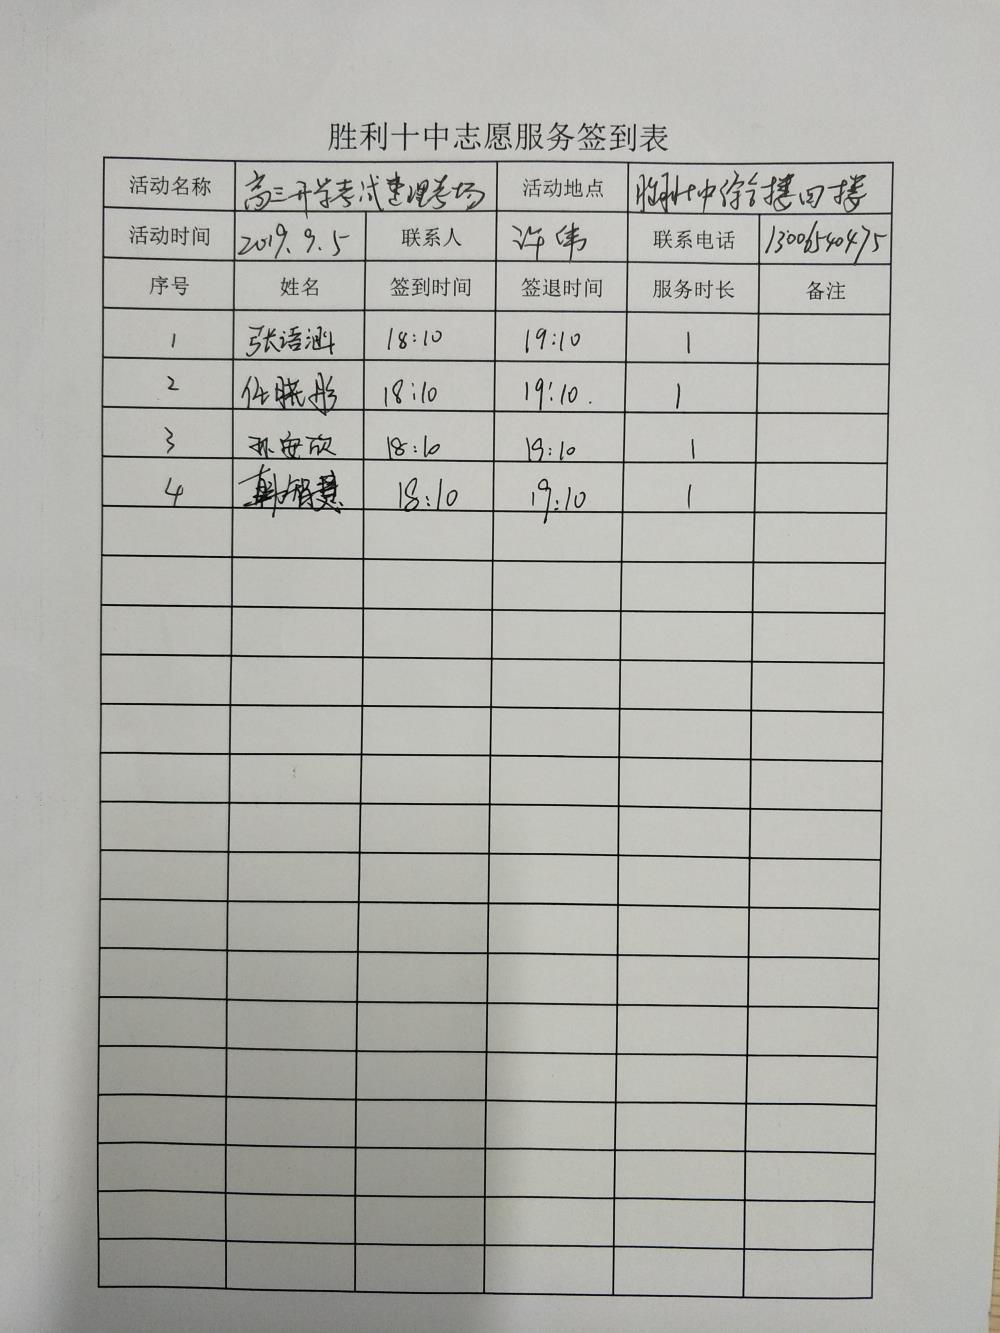 胜利十中志愿服务签到表
活动名称 高三开学考试整理考场 活动地点 胜利十中综合楼四楼
活动时间 2019.9.5 联系人 许伟 联系电话 13006540475
序号 姓名 签到时间 签退时间 服务时长 备注
1 张语涵 18:10 19:10 1
2 任晓彤 18:10 19:10. 1
3 孙安欣 18:10 19:10 1
4 韩 18:10 19:10 1